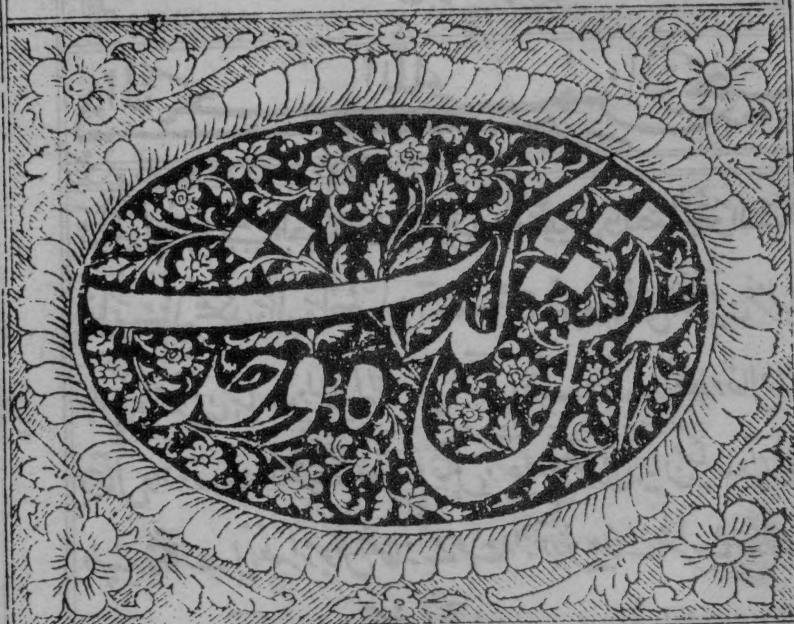 آتش کدہ وحدت